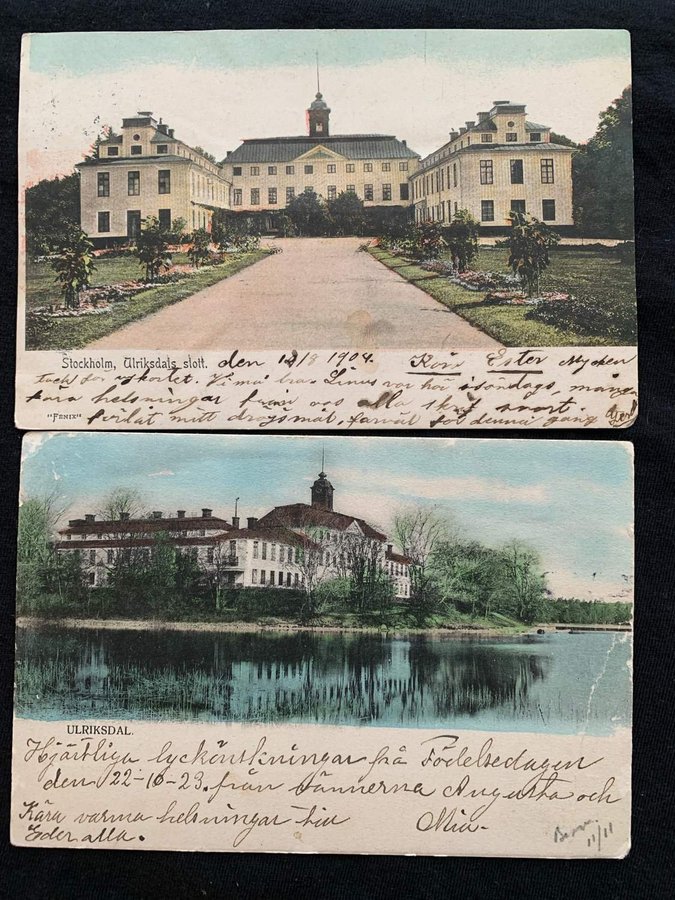 Stockholm, Ulriksdals slott. den 13/8 1904. Kära Ester Mycken
tack för kortet. Vi må bra. Linus var här i söndags, många
kära helsningar från oss alla
"FENIX" förlåt mitt dröjsmål, farväl för denna gång
ULRIKSDAL.
Hjärtliga lyckönskningar på Födelsedagen
den 22-10-23. från vännerna Augusta och
Kära varma helsningar till Mia-
Eder alla.
11/11